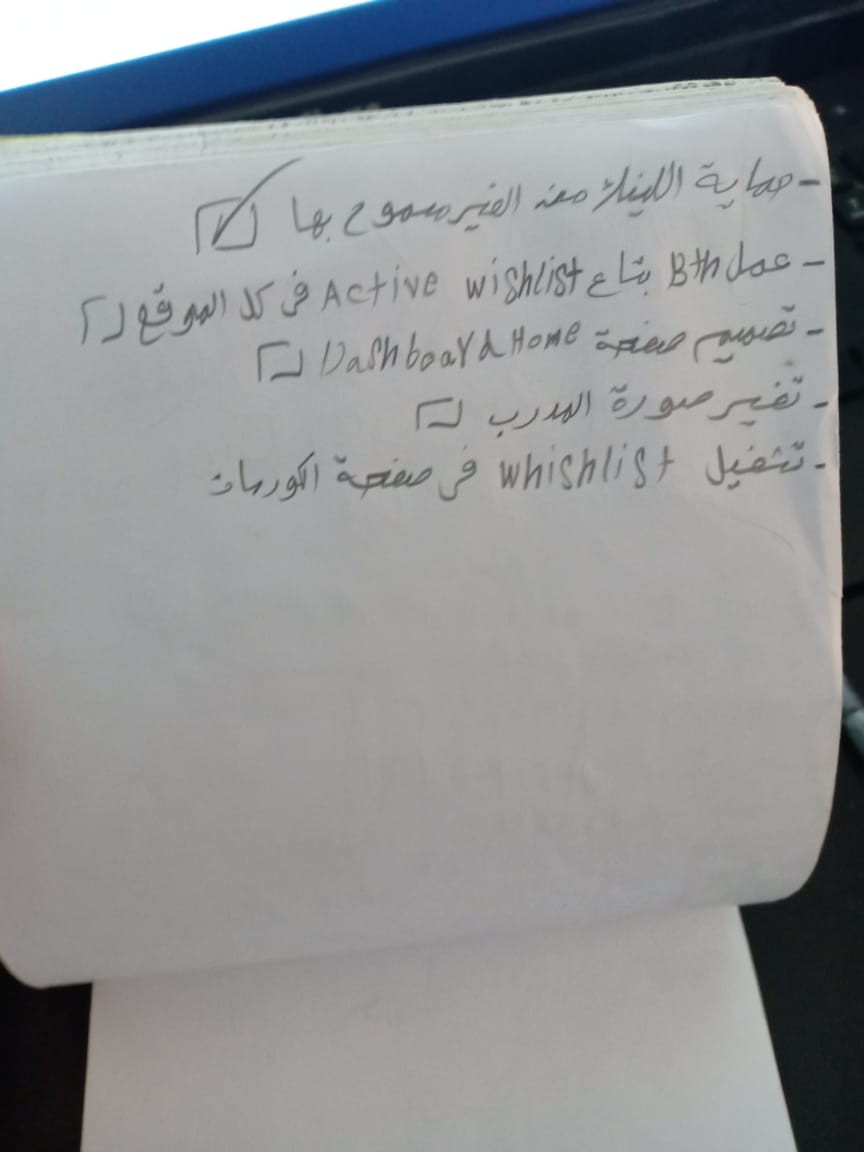 - حماية اللينك من الغير مسموح بها
- عمل Bth بتاع Active wishlist في كل الموقع
- تصميم صفحة Dashboard Home
- تغير صورة المدرب
- تشغيل whishlist في صفحة الكورسات